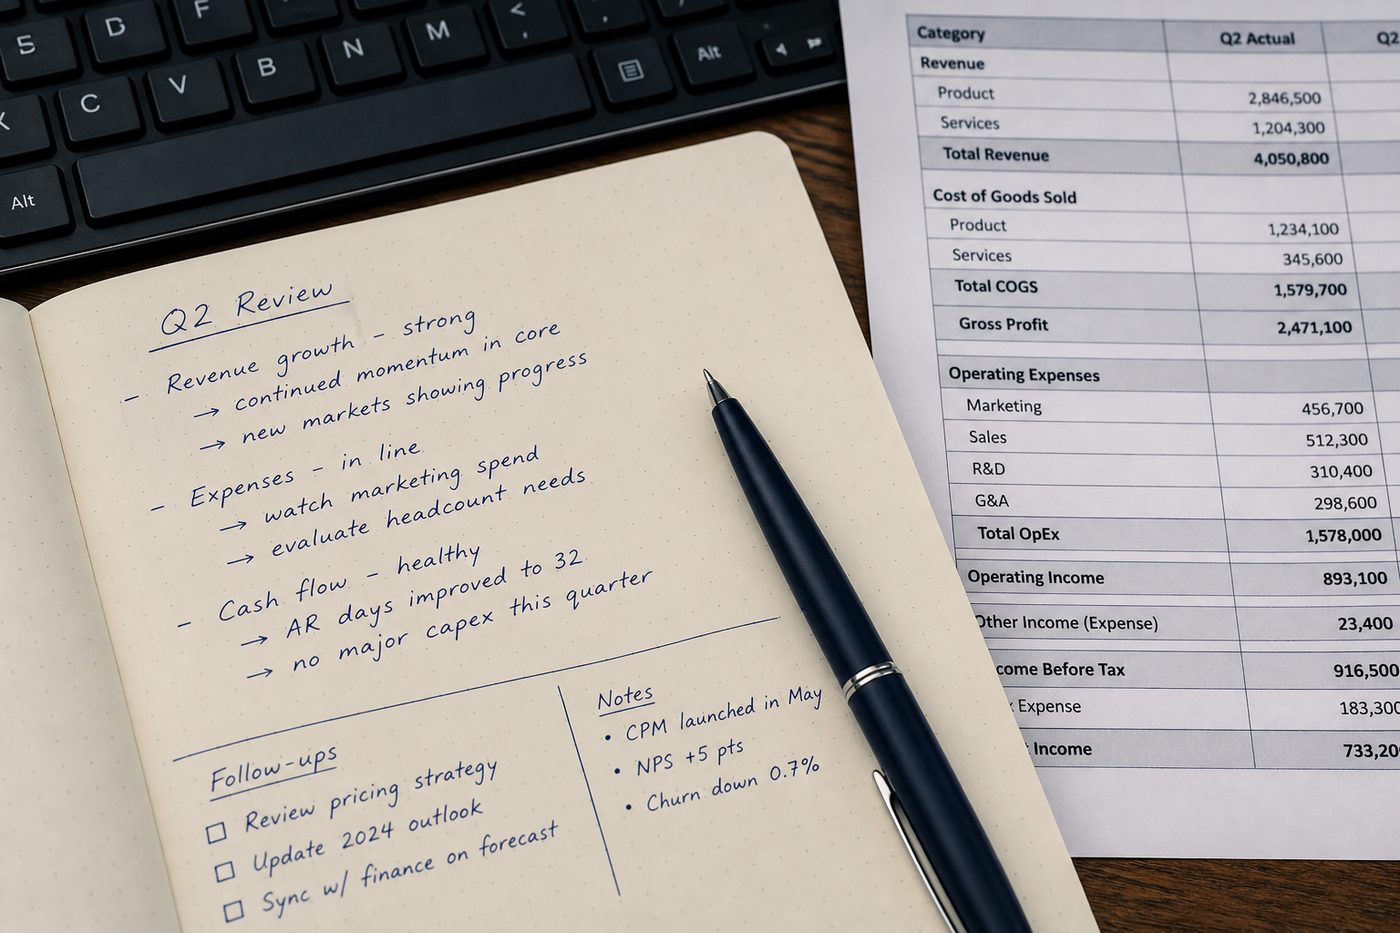 5 D F G M < ,
X C V B N Alt
Alt
Q2 Review
- Revenue growth – strong
→ continued momentum in core
→ new markets showing progress
- Expenses – in line
→ watch marketing spend
→ evaluate headcount needs
- Cash flow – healthy
→ AR days improved to 32
→ no major capex this quarter
Follow-ups
☐ Review pricing strategy
☐ Update 2024 outlook
☐ Sync w/ finance on forecast
Notes
• CPM launched in May
• NPS +5 pts
• Churn down 0.7%
Category Q2 Actual Q2
Revenue
Product 2,846,500
Services 1,204,300
Total Revenue 4,050,800
Cost of Goods Sold
Product 1,234,100
Services 345,600
Total COGS 1,579,700
Gross Profit 2,471,100
Operating Expenses
Marketing 456,700
Sales 512,300
R&D 310,400
G&A 298,600
Total OpEx 1,578,000
Operating Income 893,100
Other Income (Expense) 23,400
come Before Tax 916,500
Expense 183,300
Income 733,20